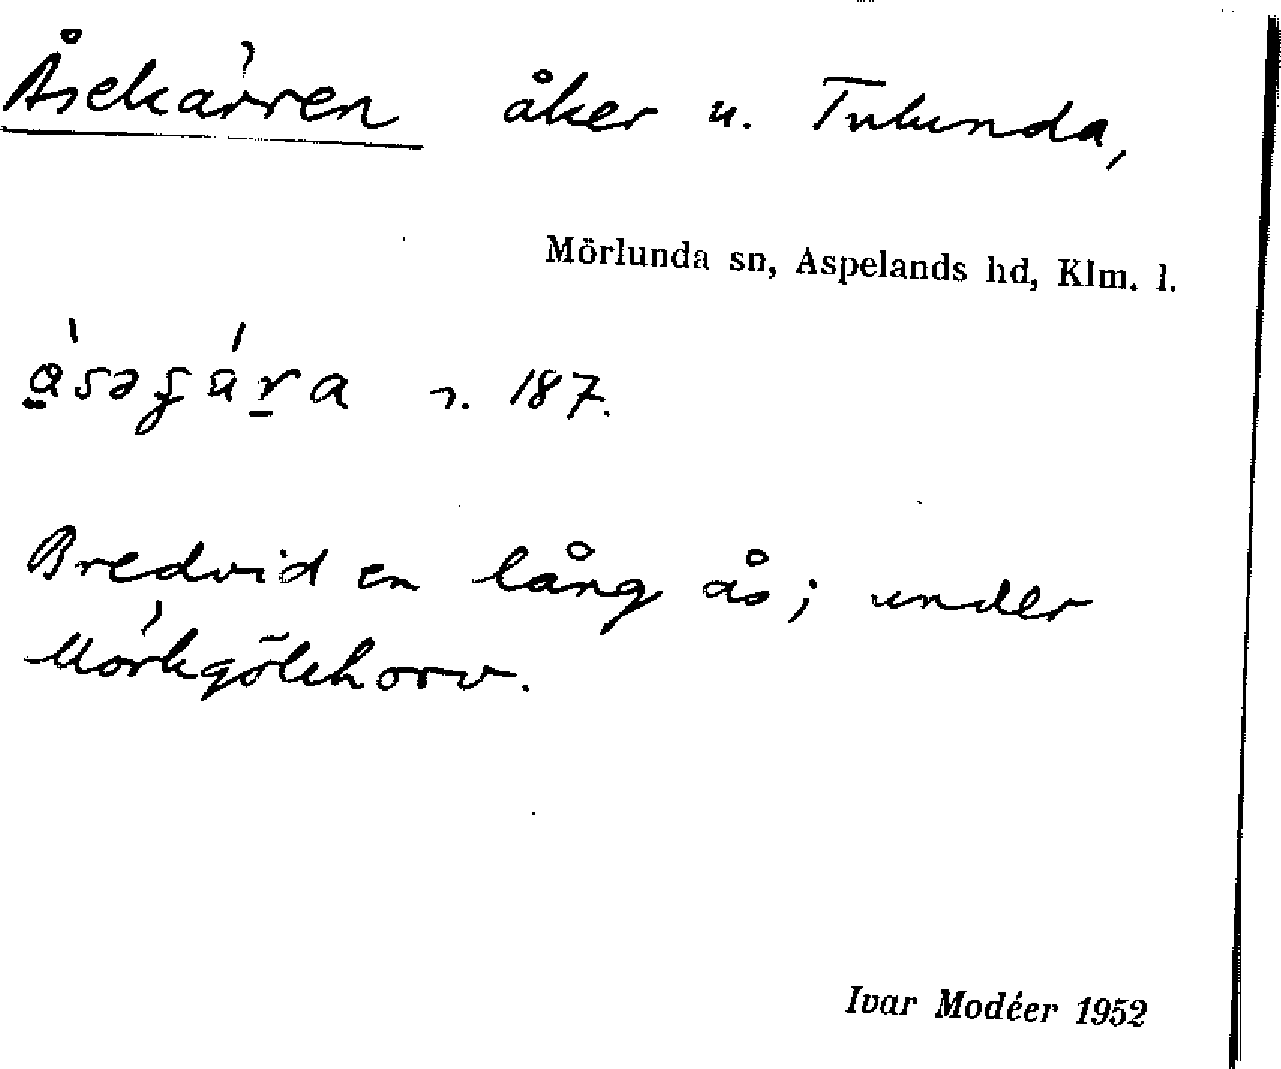 Åsekärren åker u. Tulunda,
Mörlunda sn, Aspelands hd, Klm. l.
n. 187.
Bredvid en lång ås; under
Mörkgölehorv.
Ivar Modéer 1952